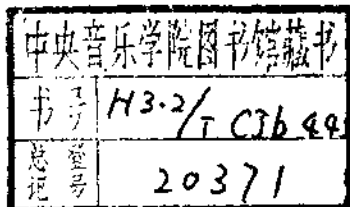 中央音乐学院图书馆藏书
书号 H3.2/T C3b 44
总登记号 20371